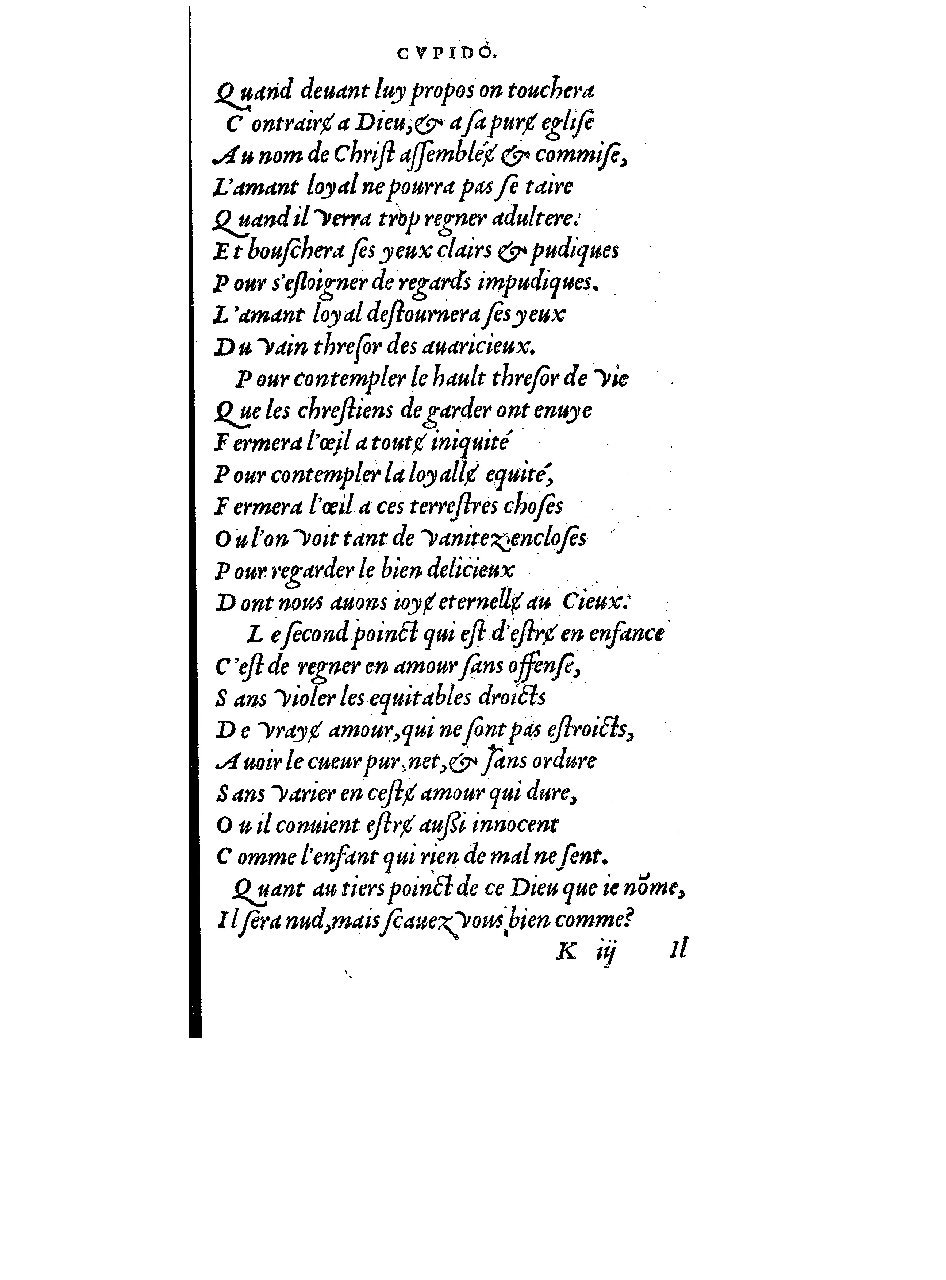 CVPIDO.
Quand deuant luy propos on touchera
Contrairɇ a Dieu, & a ſa purɇ egliſe
Au nom de Chriſt aſſembléɇ & commiſe,
L'amant loyal ne pourra pas ſe taire
Quand il verra trop regner adultere:
Et bouſchera ſes yeux clairs & pudiques
Pour s'eſloigner de regards impudiques.
L'amant loyal deſtournera ſes yeux
Du vain threſor des auaricieux.
Pour contempler le hault threſor de vie
Que les chreſtiens de garder ont enuye
Fermera l'œil a toutɇ iniquité
Pour contempler la loyallɇ equité,
Fermera l'œil a ces terreſtres choſes
Ou l'on voit tant de vanitez encloſes
Pour regarder le bien delicieux
Dont nous auons ioyɇ eternellɇ au Cieux:
Le ſecond poinct qui eſt d'eſtrɇ en enfance
C'eſt de regner en amour ſans offenſe,
Sans violer les equitables droicts
De vrayɇ amour, qui ne ſont pas eſtroicts,
Auoir le cueur pur, net, & ſans ordure
Sans varier en ceſtɇ amour qui dure,
Ou il conuient eſtrɇ auſsi innocent
Comme l'enfant qui rien de mal ne ſent.
Quant au tiers poinct de ce Dieu que ie nõme,
Il ſera nud, mais ſcauez vous bien comme?
K iij Il